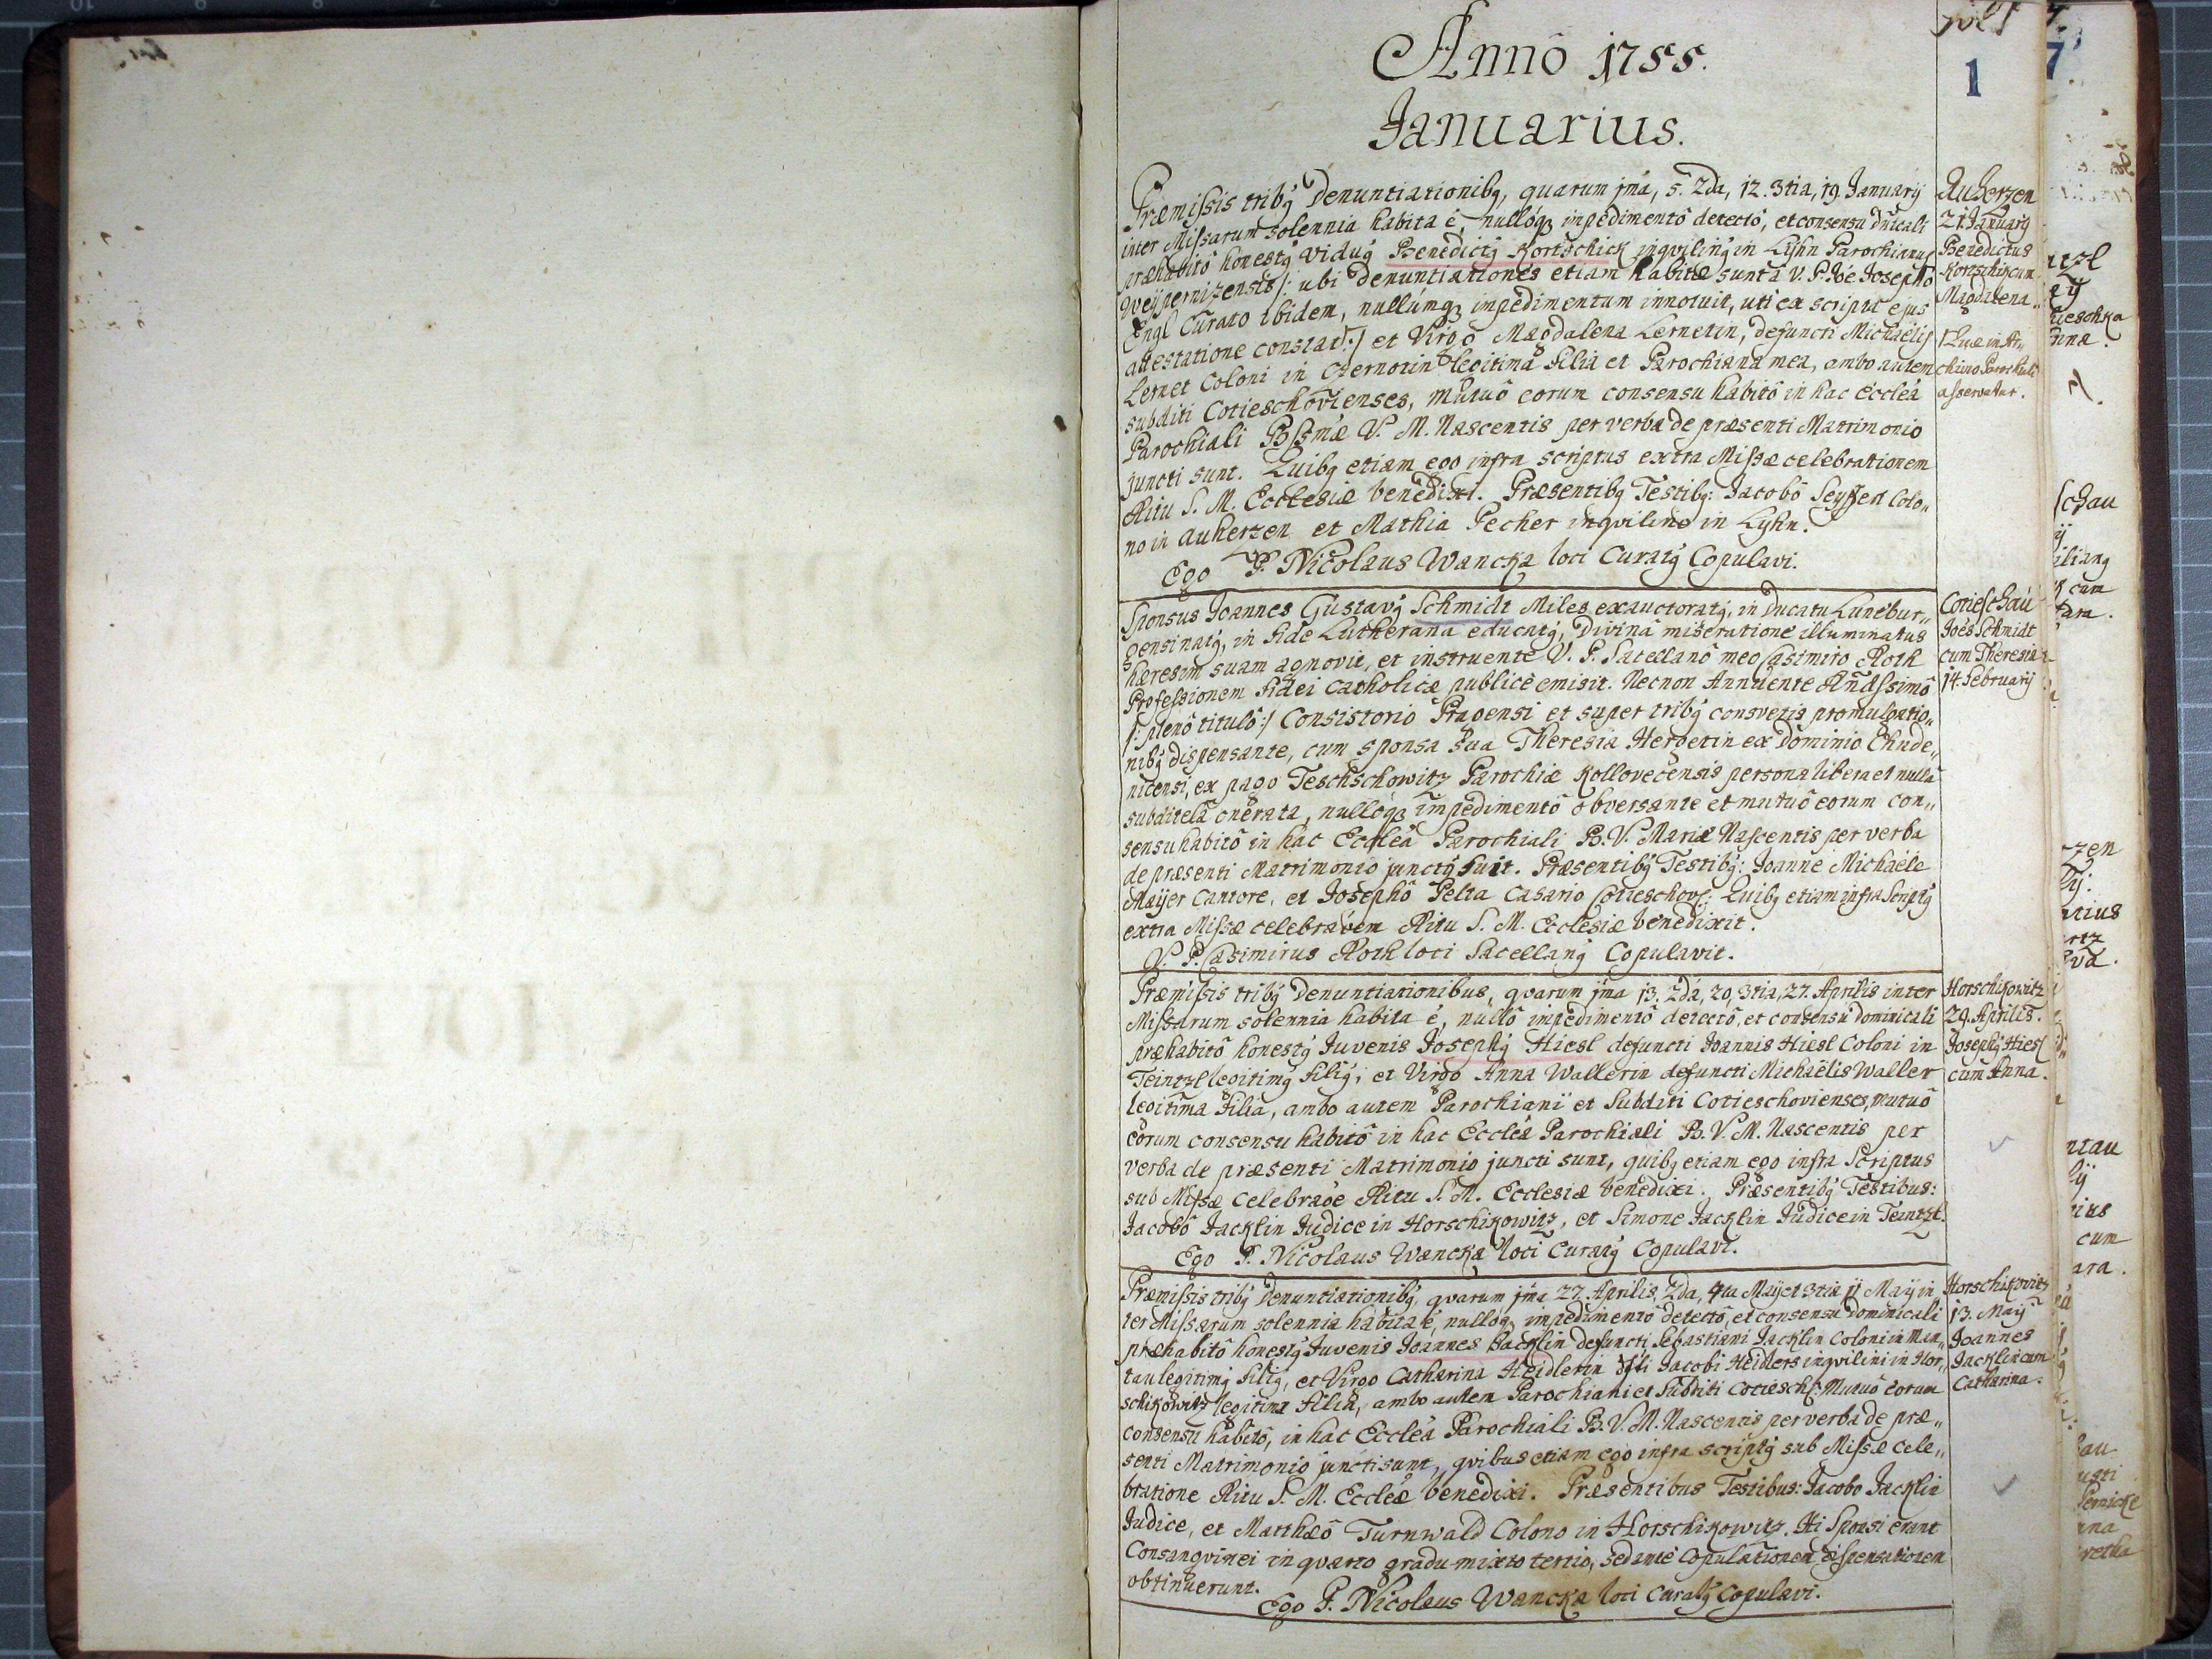 Annô 1755.
Januarius.
fol 1
1
Præmissis tribꝯ Denuntiationibꝯ, quarum jma, 5. 2da, 12. 3tia, 19. Januarij
inter Missarum solennia habita ē, nullóqꝫ impedimentô detectô, et consensu Dnicali
præhabitô honestꝯ Viduꝯ Benedictꝯ Kortschick inqvilinꝯ in Lyhn Parochianus
Weÿpernizensis /: ubi Denuntiationes etiam habitæ sunt à V. P. Joë Josepho
Engl Curato Ibidem, nullúmqꝫ impedimentum innotuit, uti ex scripta ejus
attestatione constat :/ et Virgo Magdalena Lernetin, defuncti Michaëlis
Lernet Coloni in Czernotin legitima Filia et Parochiana mea, ambo autem
subditi Cotieschovienses, mutuô eorum consensu habitô in hac Eccleâ
Parochiali Bssmæ V. M. Nascentis per verba de præsenti Matrimonio
juncti sunt. Quibꝯ etiam ego infra scriptus extra Missæ celebrationem
Ritu S. M. Ecclesiæ benedixi. Præsentibꝯ Testibꝯ: Jacobô Seyffert Colo„
no in Auherzen et Mathia Pecher inqvilino in Lyhn.
Ego P. Nicolaus Wancka loci Curatꝯ Copulavi.
Auherzen
21. Januarij
Benedictus
Kortschik cum
Magdalena„
/: Quæ in Ar„
chivo Parochiali
asservatur.
Sponsus Joannes Gustavꝯ Schmidt Miles exauctoratꝯ, in Ducatu Lunebur„
gensi natꝯ, in fide Lutherana educatꝯ, Divinâ miseratione illuminatus
hæresim suam agnovit, et instruente V. P. Sacellanô meo Casimiro Roth
Professionem fidei Catholicæ publicè emisit. Necnon Annuente Rndssimô
/: plenô titulô :/ Consistorio Pragensi et super tribꝯ consvetis promulgatio„
nibꝯ dispensante, cum sponsa sua Theresia Hergetin ex Dominio Chude„
nicensi, ex pago Teschschowitz Parochiæ Kollovecensis persona libera et nullâ
subditelâ onerata, nullóqꝫ impedimentô obversante et mutuô eorum con„
sensu habitô in hac Eccleâ Parochiali B. V. Mariæ Nascentis per verba
de præsenti Matrimonio junctꝯ fuit. Præsentibꝯ Testibꝯ: Joanne Michaële
Maÿer Cantore, et Josephô Pelta Casario Cotieschov: Quibꝯ etiam infra Scriptꝯ
extra Missæ celebraõem Ritu S. M. Ecclesiæ benedixit.
V. P. Casimirus Roth loci Sacellanꝯ Copulavit.
Cotieschau
Joës Schmidt
cum Theresia
14. Februarij
Præmissis tribꝯ Denuntiationibus, qvarum jma 13. 2da, 20, 3tia, 27. Aprilis inter
Missarum solennia habita ē, nullô impedimentô detectô, et consensu Dominicali
præhabitô honestꝯ Juvenis Josephꝯ Hiesl defuncti Joannis Hiesl Coloni in
Teintzl legitimꝯ Filiꝯ, et Virgo Anna Wallerin defuncti Michaëlis Waller
legitima Filia, ambo autem Parochiani et Subditi Cotieschovienses, mutuô
eorum consensu habitô in hac Eccleâ Parochiali B. V. M. Nascentis per
verba de præsenti Matrimonio juncti sunt, quibꝯ etiam ego infra Scriptus
sub Missæ Celebraõe Ritu S. M. Ecclesiæ benedixi. Præsentibꝯ Testibus:
Jacobô Jacklin Judice in Horschikowitz, et Simone Jacklin Judice in Teintzl.
Ego P. Nicolaus Wancka loci Curatꝯ Copulavi.
Horschikowitz
29. Aprilis.
Josephꝯ Hiesl
cum Anna.
Præmissis tribꝯ Denuntiationibꝯ, qvarum jma 27. Aprilis, 2da, 4ta Maij et 3tia 11 Maij in
ter Missarum solennia habita ē, nullóqꝫ impedimentô detectô, et consensu Dominicali
præhabitô honestꝯ Juvenis Joannes Jacklin defuncti Sebastiani Jacklin Coloni in Man„
tau legitimꝯ Filiꝯ, et Virgo Catharina Heidlerin Jacobi Heidlers inqvilini in Hor„
schikowitz legitima Filia, ambo autem Parochiani et Subditi Cotiesch: Mutuô eorum
consensu habitô, in hac Eccleâ Parochiali B. V. M. Nascentis per verba de præ„
senti Matrimonio juncti sunt, qvibus etiam ego infra scriptꝯ sub Missæ cele„
bratione Ritu S. M. Eccleæ benedixi. Præsentibus Testibus: Jacobo Jacklin
Judice, et Matthæô Turnwald Colono in Horschikowitz. Hi Sponsi erant
Consangvinei in qvarto gradu mixto tertio, sed ante Copulationem dispensationem
obtinuerunt.
Ego P. Nicolaus Wancka loci Curatꝯ Copulavi.
Horschikovitz
13. Maij
Joannes
Jacklin cum
Catharina.